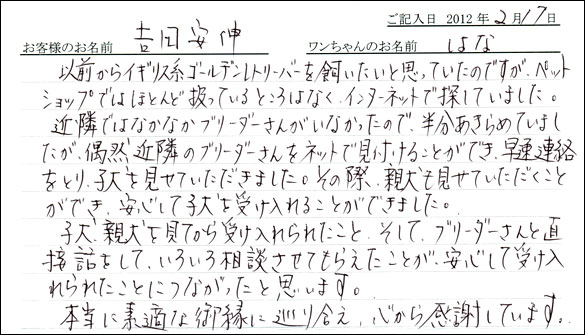 ご記入日 2012年2月17日
お客様のお名前 吉田安伸 ワンちゃんのお名前 はな
以前からイギリス系ゴールデンレトリーバーを飼いたいと思っていたのですが、ペット
ショップではほとんど扱っているところはなく、インターネットで探していました。
近隣ではなかなかブリーダーさんがいなかったので、半分あきらめていまし
たが、偶然、近隣のブリーダーさんをネットで見付けることができ、早速連絡
をとり、子犬を見せていただきました。その際、親犬も見せていただくこと
ができ、安心して子犬を受け入れることができました。
子犬、親犬を見てから受け入れられたこと、そして、ブリーダーさんと直
接話をして、いろいろ相談させてもらえたことが、安心して受け入
れられたことにつながったと思います。
本当に素適な御縁に巡り合え、心から感謝しています。